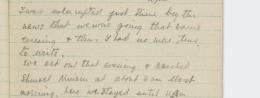 I was interrupted just then by the
news that we were going that same
evening & then I had no more time
to write.
We set out that evening & reached
at about 6 am next
morning, here we stayed until